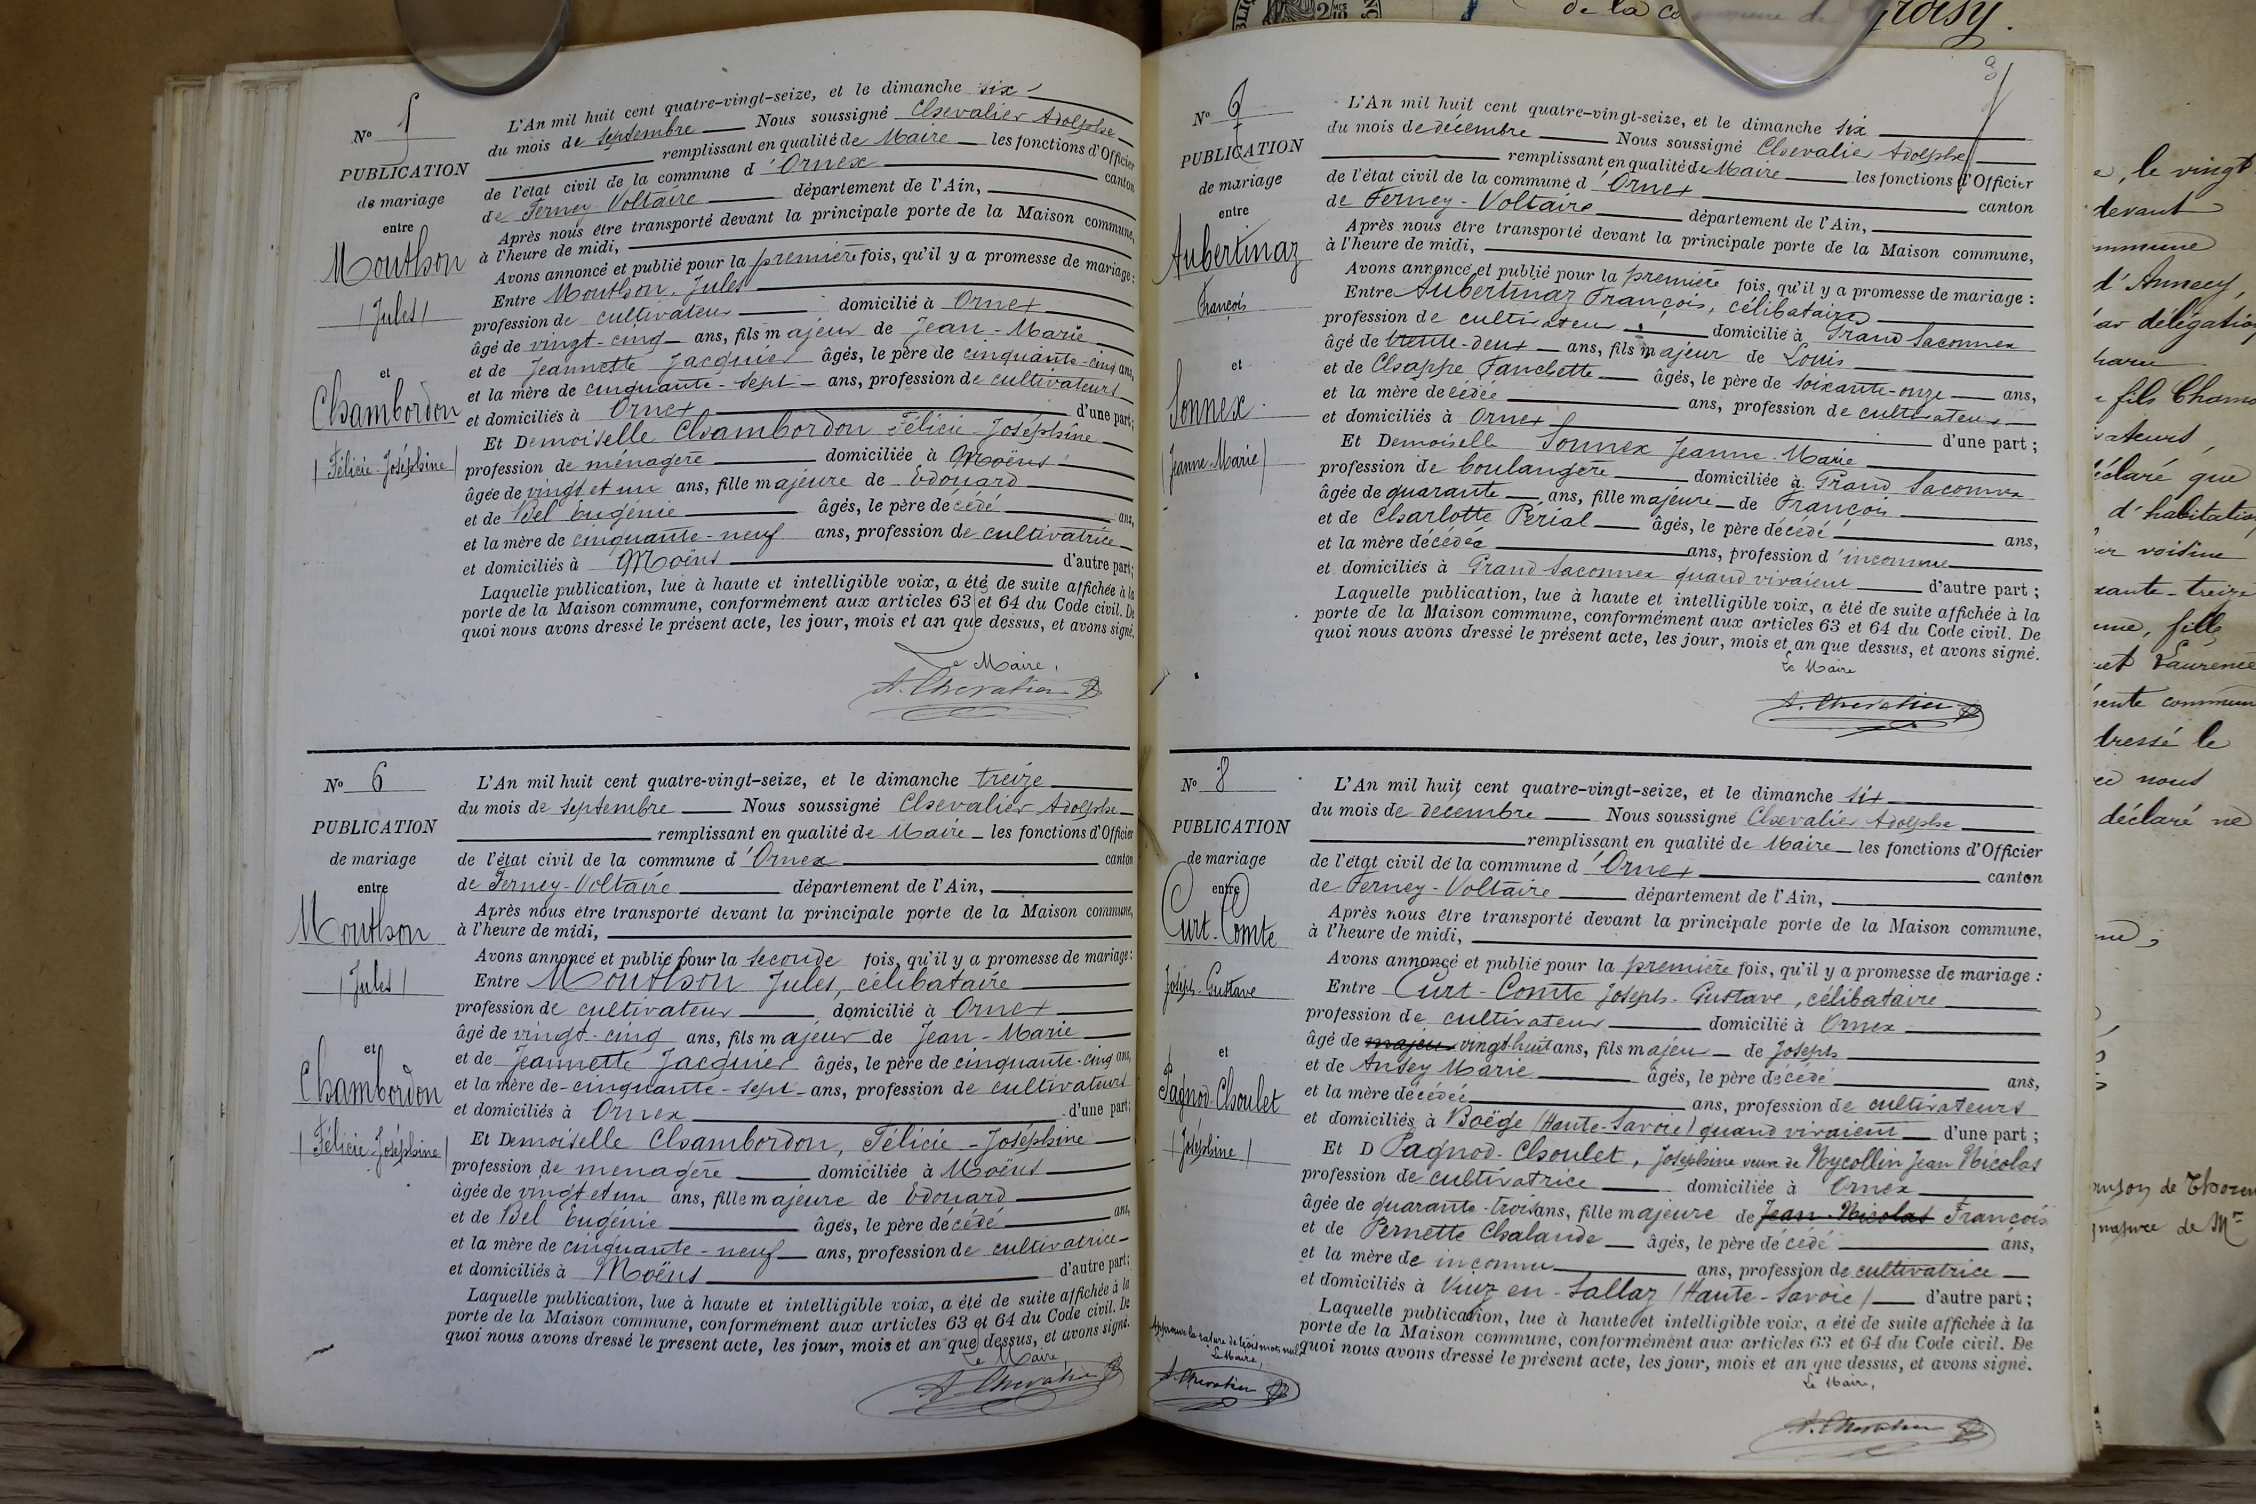 de la co
roisy.
N° 5
PUBLICATION
de mariage
entre
Mouthon
(Jules)
et
Chambordon
(Félicie-Joséphine)
L'An mil huit cent quatre-vingt-seize, et le dimanche six
du mois de septembre Nous soussigné Chevalier Adolphe
remplissant en qualité de Maire les fonctions d'Officier
de l'état civil de la commune d'Ornex canton
de Ferney-Voltaire département de l'Ain,
Après nous être transporté devant la principale porte de la Maison commune,
à l'heure de midi,
Avons annoncé et publié pour la première fois, qu'il y a promesse de mariage :
Entre Mouthon, Jules
profession de cultivateur domicilié à Ornex
âgé de vingt-cinq ans, fils majeur de Jean-Marie
et de Jeannette Jacquier âgés, le père de cinquante-cinq ans,
et la mère de cinquante-sept ans, profession de cultivateurs
et domiciliés à Ornex d'une part;
Et Demoiselle Chambordon Félicie-Joséphine
profession de ménagère domiciliée à Moëns
âgée de vingt et un ans, fille majeure de Edouard
et de Bel Eugénie âgés, le père décédé ans,
et la mère de cinquante-neuf ans, profession de cultivatrice
et domiciliés à Moëns d'autre part;
Laquelle publication, lue à haute et intelligible voix, a été de suite affichée à la
porte de la Maison commune, conformément aux articles 63 et 64 du Code civil. De
quoi nous avons dressé le présent acte, les jour, mois et an que dessus, et avons signé.
Le Maire,
A. Chevalier
N° 6
PUBLICATION
de mariage
entre
Mouthon
(Jules)
et
Chambordon
(Félicie-Joséphine)
L'An mil huit cent quatre-vingt-seize, et le dimanche treize
du mois de septembre Nous soussigné Chevalier Adolphe
remplissant en qualité de Maire les fonctions d'Officier
de l'état civil de la commune d'Ornex canton
de Ferney-Voltaire département de l'Ain,
Après nous être transporté devant la principale porte de la Maison commune,
à l'heure de midi,
Avons annoncé et publié pour la seconde fois, qu'il y a promesse de mariage :
Entre Mouthon Jules, célibataire
profession de cultivateur domicilié à Ornex
âgé de vingt-cinq ans, fils majeur de Jean-Marie
et de Jeannette Jacquier âgés, le père de cinquante-cinq ans,
et la mère de cinquante-sept ans, profession de cultivateurs
et domiciliés à Ornex d'une part;
Et Demoiselle Chambordon, Félicie-Joséphine
profession de ménagère domiciliée à Moëns
âgée de vingt et un ans, fille majeure de Edouard
et de Bel Eugénie âgés, le père décédé ans,
et la mère de cinquante-neuf ans, profession de cultivatrice
et domiciliés à Moëns d'autre part;
Laquelle publication, lue à haute et intelligible voix, a été de suite affichée à la
porte de la Maison commune, conformément aux articles 63 et 64 du Code civil. De
quoi nous avons dressé le présent acte, les jour, mois et an que dessus, et avons signé.
Le Maire,
A. Chevalier
N° 7
PUBLICATION
de mariage
entre
Aubertinaz
François
et
Sonnex
(Jeanne-Marie)
L'An mil huit cent quatre-vingt-seize, et le dimanche six
du mois de décembre Nous soussigné Chevalier Adolphe
remplissant en qualité de Maire les fonctions d'Officier
de l'état civil de la commune d'Ornex canton
de Ferney-Voltaire département de l'Ain,
Après nous être transporté devant la principale porte de la Maison commune,
à l'heure de midi,
Avons annoncé et publié pour la première fois, qu'il y a promesse de mariage :
Entre Aubertinaz François, célibataire
profession de cultivateur domicilié à Grand Saconnex
âgé de trente-deux ans, fils majeur de Louis
et de Chappe Fanchette âgés, le père de soixante-onze ans,
et la mère décédée ans, profession de cultivateurs
et domiciliés à Ornex d'une part ;
Et Demoiselle Sonnex Jeanne-Marie
profession de boulangère domiciliée à Grand Saconnex
âgée de quarante ans, fille majeure de François
et de Charlotte Périal âgés, le père décédé ans,
et la mère décédée ans, profession d'inconnue
et domiciliés à Grand Saconnex quand vivaient d'autre part ;
Laquelle publication, lue à haute et intelligible voix, a été de suite affichée à la
porte de la Maison commune, conformément aux articles 63 et 64 du Code civil. De
quoi nous avons dressé le présent acte, les jour, mois et an que dessus, et avons signé.
Le Maire
A. Chevalier
N° 8
PUBLICATION
de mariage
entre
Curt-Comte
Joseph-Gustave
et
Pagnod-Choulet
(Joséphine)
L'An mil huit cent quatre-vingt-seize, et le dimanche six
du mois de décembre Nous soussigné Chevalier Adolphe
remplissant en qualité de Maire les fonctions d'Officier
de l'état civil de la commune d'Ornex canton
de Ferney-Voltaire département de l'Ain,
Après nous être transporté devant la principale porte de la Maison commune,
à l'heure de midi,
Avons annoncé et publié pour la première fois, qu'il y a promesse de mariage :
Entre Curt-Comte Joseph-Gustave, célibataire
profession de cultivateur domicilié à Ornex
âgé de majeur vingt-huit ans, fils majeur de Joseph
et de Ansey Marie âgés, le père décédé ans,
et la mère décédée ans, profession de cultivateurs
et domiciliés à Boëge (Haute-Savoie) quand vivaient d'une part ;
Et D Pagnod-Choulet, Joséphine veuve de Nycollin Jean Nicolas
profession de cultivatrice domiciliée à Ornex
âgée de quarante-trois ans, fille majeure de Jean-Nicolas François
et de Pernette Chalande âgés, le père décédé ans,
et la mère de inconnu ans, profession de cultivatrice
et domiciliés à Viuz en-Sallaz (Haute-Savoie) d'autre part ;
Laquelle publication, lue à haute et intelligible voix, a été de suite affichée à la
porte de la Maison commune, conformément aux articles 63 et 64 du Code civil. De
quoi nous avons dressé le présent acte, les jour, mois et an que dessus, et avons signé.
Le Maire,
A. Chevalier
Approuvé la rature de trois mots nuls
Le Maire,
A. Chevalier
, le vingt
devant
d'Annecy,
délégation
fils
déclaré que
d'habitation
voisine
-treize
fille
Laurence
commun
dressé le
nous
déclaré ne
de
de Mr